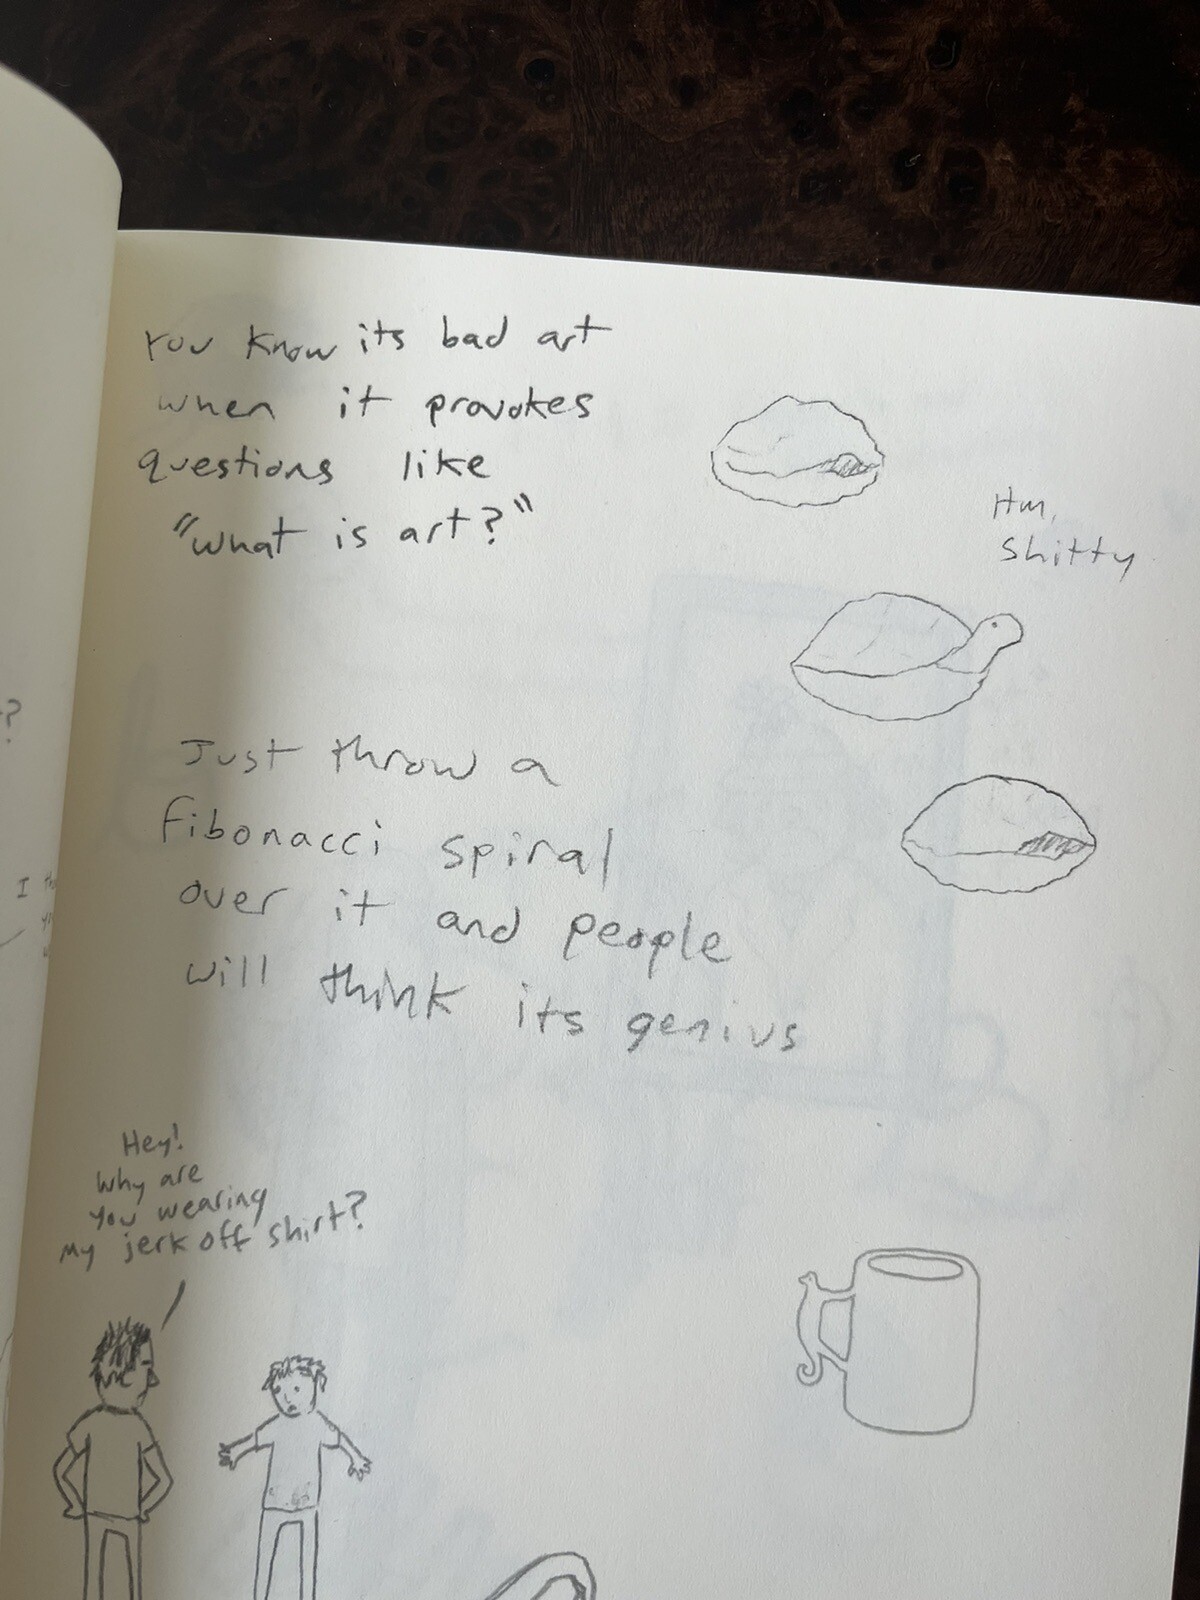 You know its bad art
when it provokes
questions like
"what is art?"
Hm,
Shitty
Just throw a
fibonacci spiral
over it and people
will think its genius
Hey!
Why are
you wearing
my jerk off shirt?
?
I